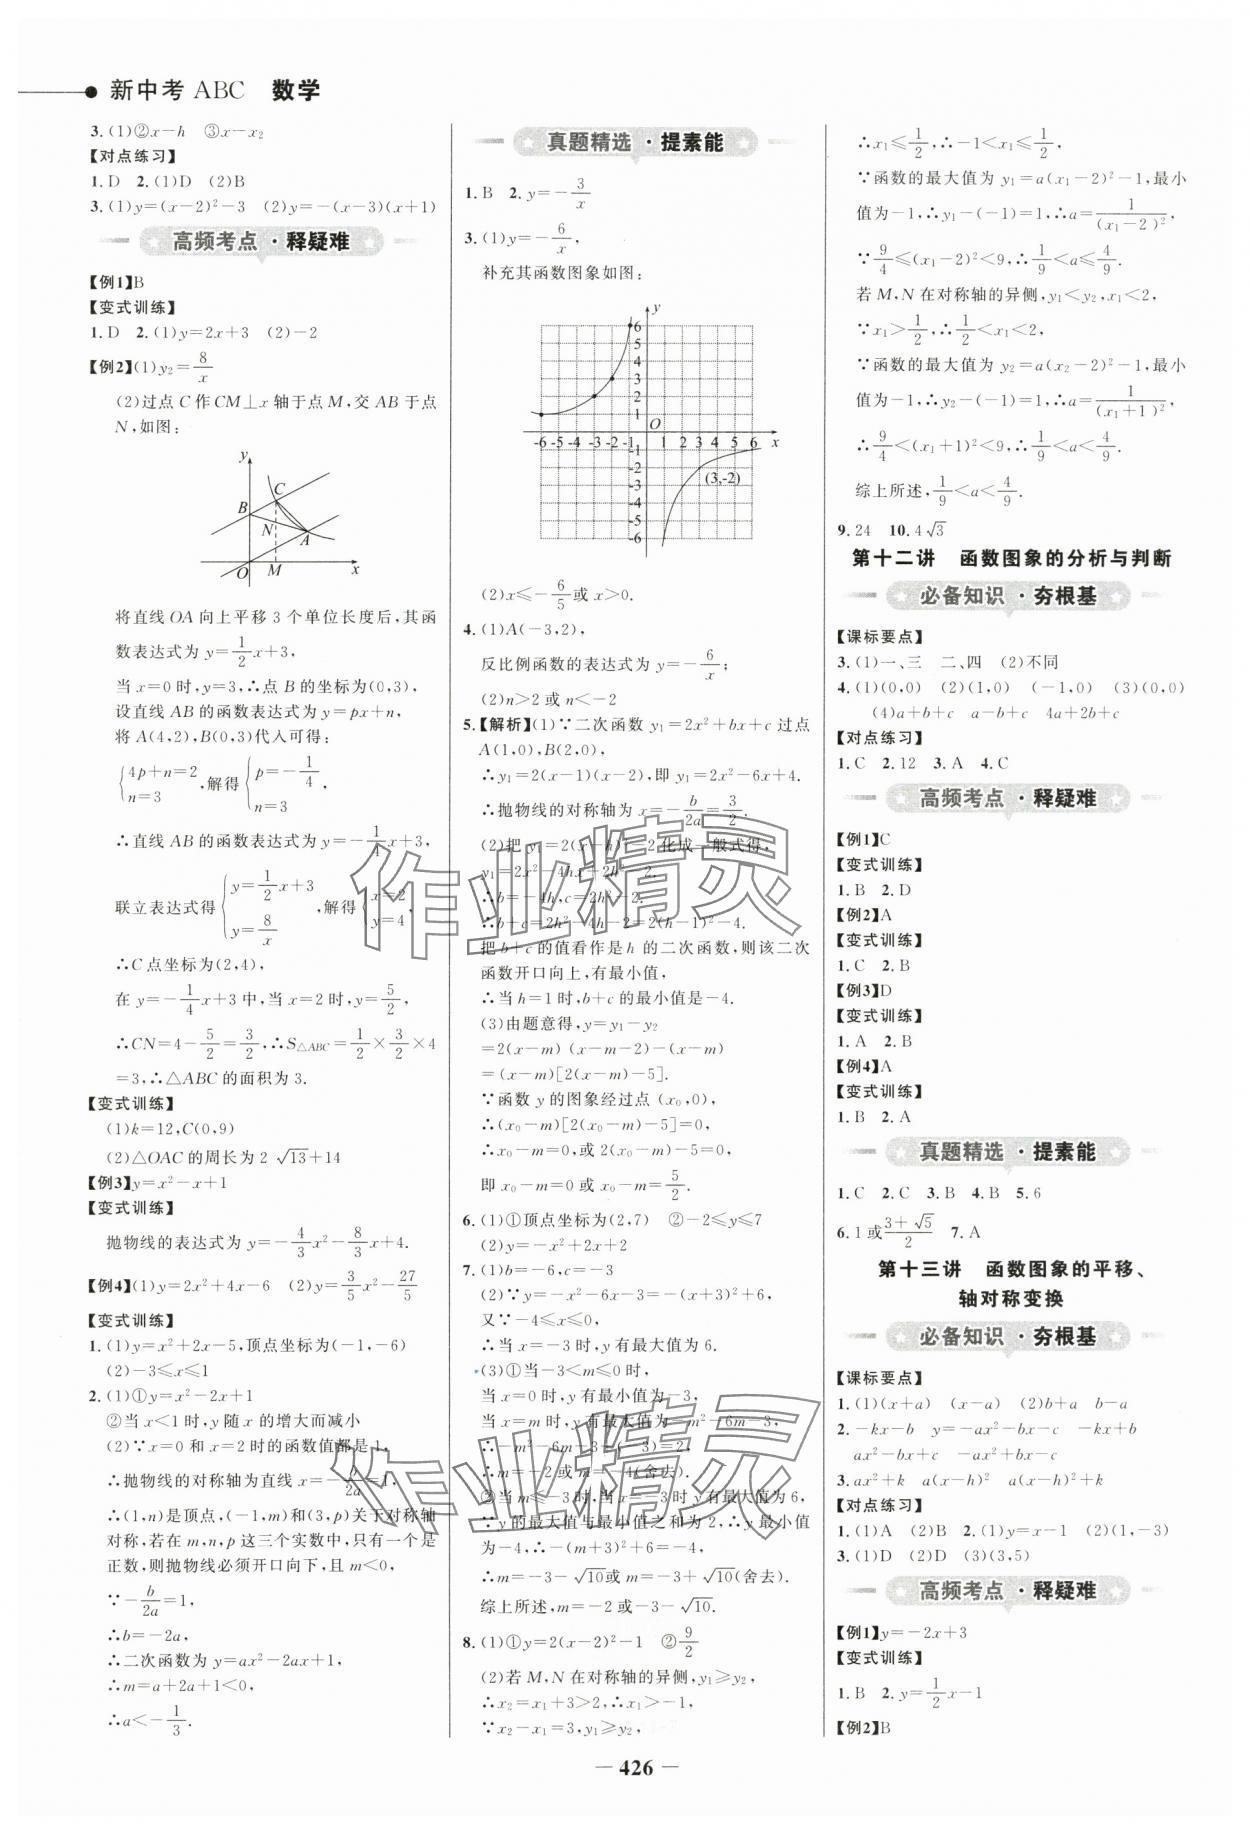 新中考 ABC 数学
3. (1)②x−h ③x−x₂
【对点练习】
1. D 2. (1)D (2)B
3. (1)y=(x−2)²−3 (2)y=−(x−3)(x+1)
高频考点 · 释疑难
【例1】B
【变式训练】
1. D 2. (1)y=2x+3 (2)−2
【例2】(1)y₂=8/x
(2)过点 C 作 CM⊥x 轴于点 M,交 AB 于点
N,如图:
y
C
B
N
A
O M x
将直线 OA 向上平移 3 个单位长度后,其函
数表达式为 y=1/2x+3,
当 x=0 时,y=3,∴点 B 的坐标为(0,3),
设直线 AB 的函数表达式为 y=px+n,
将 A(4,2),B(0,3)代入可得:
{4p+n=2 n=3,解得{p=−1/4 n=3,
∴直线 AB 的函数表达式为 y=−1/4x+3,
联立表达式得{y=1/2x+3 y=8/x,解得{x=2 y=4,
∴C 点坐标为(2,4),
在 y=−1/4x+3 中,当 x=2 时,y=5/2,
∴CN=4−5/2=3/2,∴S△ABC=1/2×3/2×4
=3,∴△ABC 的面积为 3.
【变式训练】
(1)k=12,C(0,9)
(2)△OAC 的周长为 2√13+14
【例3】y=x²−x+1
【变式训练】
抛物线的表达式为 y=−4/3x²−8/3x+4.
【例4】(1)y=2x²+4x−6 (2)y=3/5x²−27/5
【变式训练】
1. (1)y=x²+2x−5,顶点坐标为(−1,−6)
(2)−3≤x≤1
2. (1)①y=x²−2x+1
②当 x<1 时,y 随 x 的增大而减小
(2)∵x=0 和 x=2 时的函数值都是 1,
∴抛物线的对称轴为直线 x=−b/2a=1,
∴(1,n)是顶点,(−1,m)和(3,p)关于对称轴
对称,若在 m,n,p 这三个实数中,只有一个是
正数,则抛物线必须开口向下,且 m≤0,
∵−b/2a=1,
∴b=−2a,
∴二次函数为 y=ax²−2ax+1,
∴m=a+2a+1<0,
∴a<−1/3.
真题精选 · 提素能
1. B 2. y=−3/x
3. (1)y=−6/x,
补充其函数图象如图:
y
6
5
4
3
2
1
O
-6 -5 -4 -3 -2 -1 1 2 3 4 5 6 x
-1
-2
(3,-2)
-3
-4
-5
-6
(2)x≤−6/5或 x>0.
4. (1)A(−3,2),
反比例函数的表达式为 y=−6/x;
(2)n>2 或 n<−2
5.【解析】(1)∵二次函数 y₁=2x²+bx+c 过点
A(1,0),B(2,0),
∴y₁=2(x−1)(x−2),即 y₁=2x²−6x+4.
∴抛物线的对称轴为 x=−b/2a=3/2.
(2)把 y₁=2(x−h)²−2 化成一般式得,
y₁=2x²−4hx+2h²−2.
∴b=−4h,c=2h²−2.
∴b+c=2h²−4h−2=2(h−1)²−4.
把 b+c 的值看作是 h 的二次函数,则该二次
函数开口向上,有最小值,
∴当 h=1 时,b+c 的最小值是−4.
(3)由题意得,y=y₁−y₂
=2(x−m) (x−m−2)−(x−m)
=(x−m)[2(x−m)−5].
∵函数 y 的图象经过点 (x₀,0),
∴(x₀−m)[2(x₀−m)−5]=0,
∴x₀−m=0,或 2(x₀−m)−5=0,
即 x₀−m=0 或 x₀−m=5/2.
6. (1)①顶点坐标为(2,7) ②−2≤y≤7
(2)y=−x²+2x+2
7. (1)b=−6,c=−3
(2)∵y=−x²−6x−3=−(x+3)²+6,
又∵−4≤x≤0,
∴当 x=−3 时,y 有最大值为 6.
(3)①当−3<m≤0 时,
当 x=0 时,y 有最小值为−3,
当 x=m 时,y 有最大值为−m²−6m−3,
∴−m²−6m−3+(−3)=2,
∴m=−2 或 m=−4(舍去).
②当 m≤−3 时,当 x=−3 时 y 有最大值为 6,
∵y 的最大值与最小值之和为 2,∴y 最小值
为−4,∴−(m+3)²+6=−4,
∴m=−3−√10或 m=−3+√10(舍去).
综上所述,m=−2 或−3−√10.
8. (1)①y=2(x−2)²−1 ②9/2
(2)若 M,N 在对称轴的异侧,y₁≥y₂,
∴x₂=x₁+3>2,∴x₁>−1,
∵x₂−x₁=3,y₁≥y₂,
∴x₁≤1/2,∴−1<x₁≤1/2,
∵函数的最大值为 y₁=a(x₁−2)²−1,最小
值为−1,∴y₁−(−1)=1,∴a=1/(x₁−2)²,
∵9/4≤(x₁−2)²<9,∴1/9<a≤4/9.
若 M,N 在对称轴的异侧,y₁<y₂,x₁<2,
∵x₁>1/2,∴1/2<x₁<2,
∵函数的最大值为 y₂=a(x₂−2)²−1,最小
值为−1,∴y₂−(−1)=1,∴a=1/(x₁+1)²,
∴9/4<(x₁+1)²<9,∴1/9<a<4/9.
综上所述,1/9<a≤4/9.
9. 24 10. 4√3
第十二讲 函数图象的分析与判断
必备知识 · 夯根基
【课标要点】
3. (1)一、三 二、四 (2)不同
4. (1)(0,0) (2)(1,0) (−1,0) (3)(0,0)
(4)a+b+c a−b+c 4a+2b+c
【对点练习】
1. C 2. 12 3. A 4. C
高频考点 · 释疑难
【例1】C
【变式训练】
1. B 2. D
【例2】A
【变式训练】
1. C 2. B
【例3】D
【变式训练】
1. A 2. B
【例4】A
【变式训练】
1. B 2. A
真题精选 · 提素能
1. C 2. C 3. B 4. B 5. 6
6. 1 或(3+√5)/2 7. A
第十三讲 函数图象的平移、
轴对称变换
必备知识 · 夯根基
【课标要点】
1. (1)(x+a) (x−a) (2)b+a b−a
2. −kx−b −kx+b y=−ax²−bx−c
ax²−bx+c −ax²+bx−c
3. ax²+k a(x−h)² a(x−h)²+k
【对点练习】
1. (1)A (2)B 2. (1)y=x−1 (2)(1,−3)
3. (1)D (2)D (3)(3,5)
高频考点 · 释疑难
【例1】y=−2x+3
【变式训练】
1. B 2. y=1/2x−1
【例2】B
作业精灵
作业精灵
— 426 —